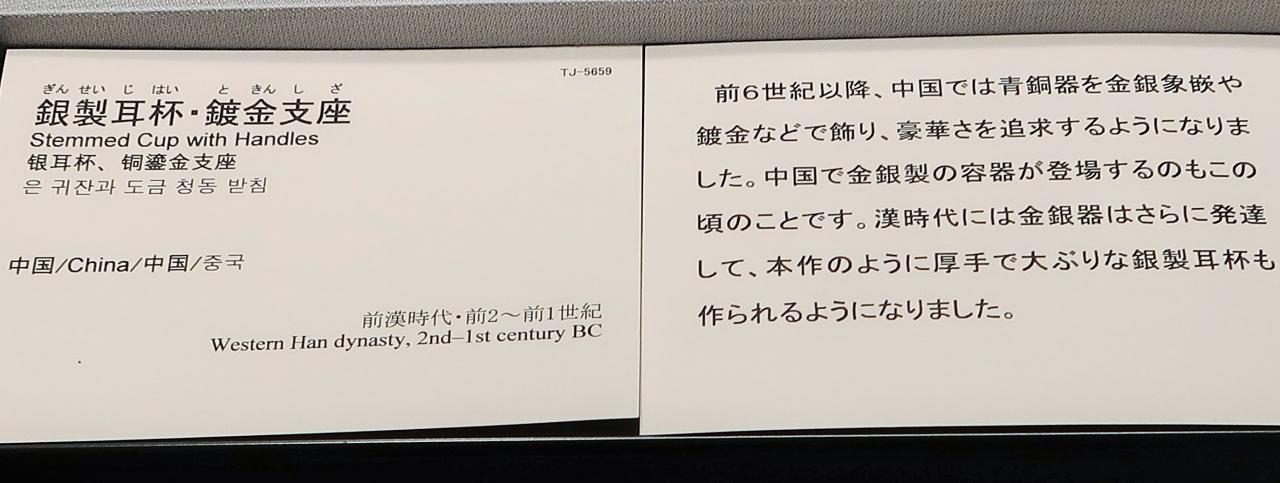 TJ-5659
ぎん せい じ はい と きん し ざ
銀製耳杯・鍍金支座
Stemmed Cup with Handles
银耳杯、铜鎏金支座
은 귀잔과 도금 청동 받침
中国/China/中国/중국
前漢時代・前2～前1世紀
Western Han dynasty, 2nd–1st century BC
前6世紀以降、中国では青銅器を金銀象嵌や
鍍金などで飾り、豪華さを追求するようになりま
した。中国で金銀製の容器が登場するのもこの
頃のことです。漢時代には金銀器はさらに発達
して、本作のように厚手で大ぶりな銀製耳杯も
作られるようになりました。